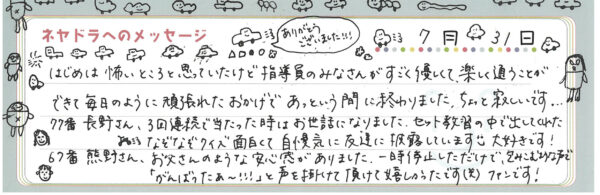 ネヤドラへのメッセージ
ありがとう
ございました!!!
7月31日
はじめは怖いところと思っていたけど指導員のみなさんがすごく優しくて、楽しく通うことが
できて毎日のように頑張れたおかげであっという間に終わりました。ちょっと寂しいです…
77番長野さん、3回連続で当たった時はお世話になりました。セット教習の中で出してくれた
なぞなぞクイズ面白くて自慢気に友達に披露しています 大好きです!
67番熊野さん、お父さんのような安心感がありました。一時停止しただけで、
「がんばったぁ〜!!!」と声を掛けて頂けて嬉しかったです(笑)ファンです!